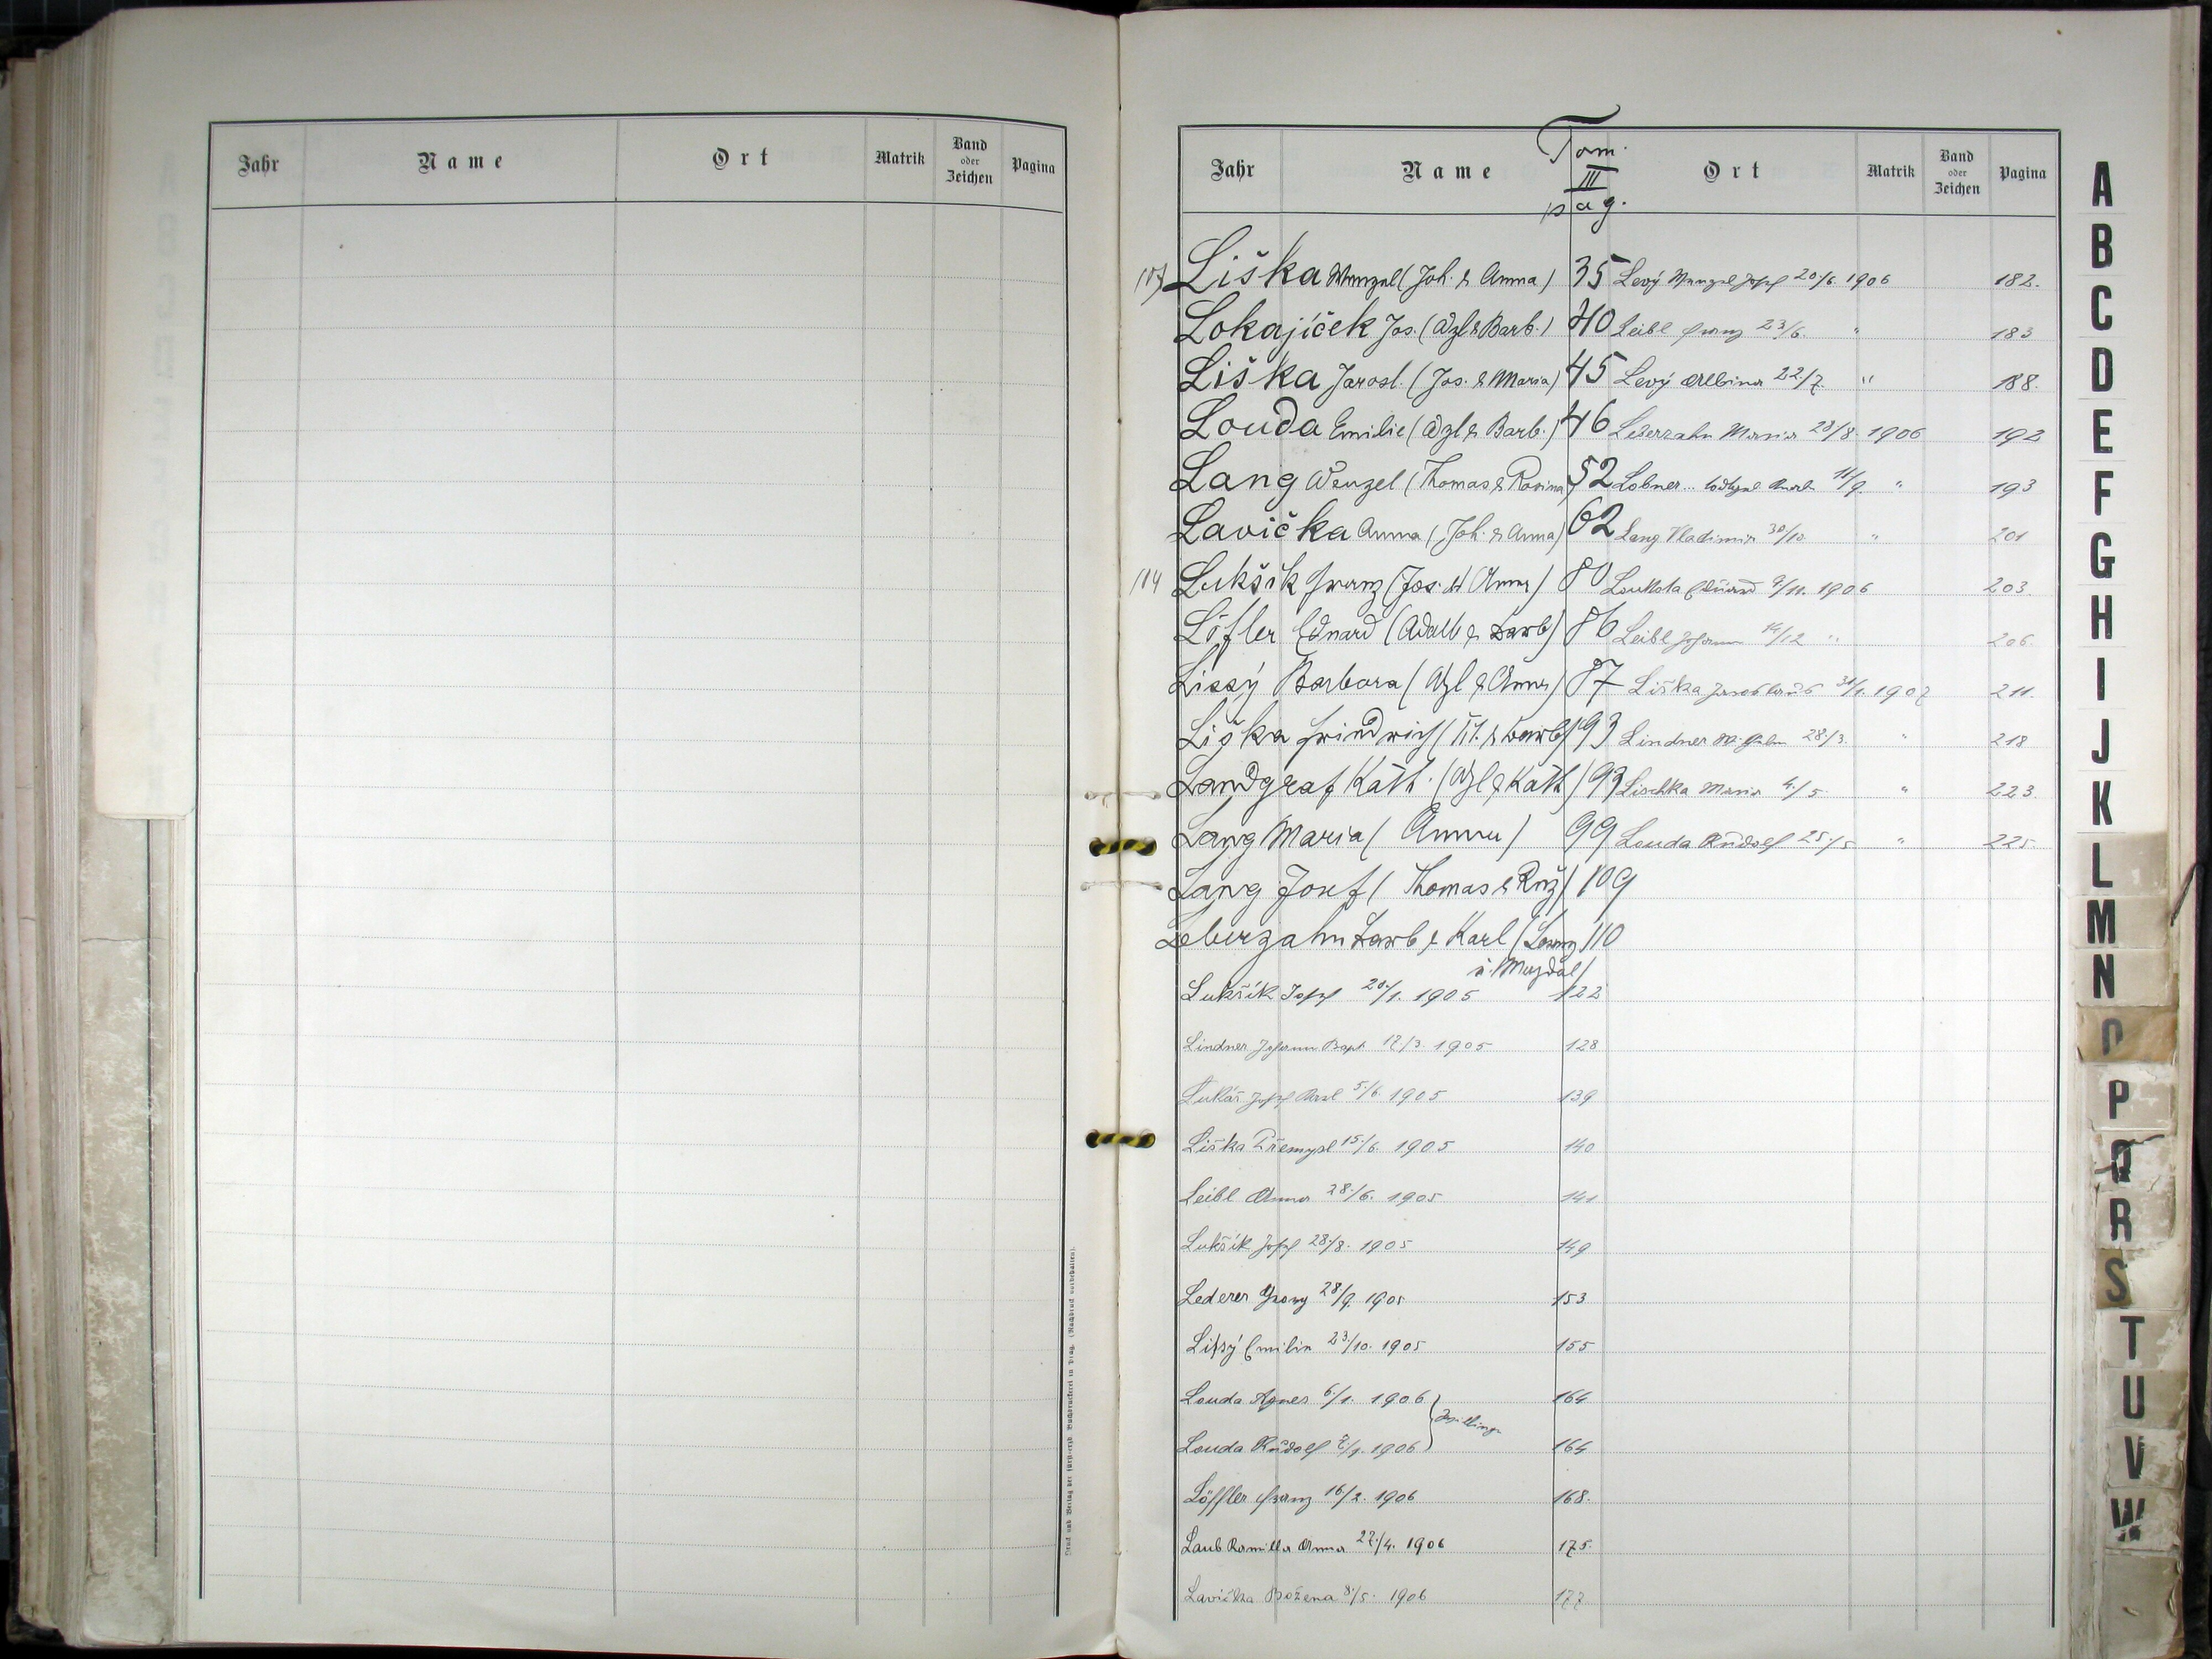 Jahr Name Ort Matrik Band oder Zeichen Pagina
Druck und Verlag der fürst-erzb. Buchdruckerei in Prag. (Nachdruck vorbehalten).
Tom.
III
pag.
Jahr Name Ort Matrik Band oder Zeichen Pagina
Liška Wenzel (Joh. & Anna) 35 Levý Wenzel Josef 20/6. 1906 182.
Lokajíček Jos. (Wzl & Barb.) 40 Leibl Franz 23/6. " 183
Liška Jarosl. (Jos. & Maria) 45 Levý Albina 22./7. " 188.
Louda Emilie (Wzl & Barb.) 46 Leberzahn Maria 23/8. 1906 192
Lang Wenzel (Thomas & Rosina) 52 Lobner 11/9. " 193
Lavička Anna (Joh. & Anna) 62 Lang Vladimir 30/10. " 201
114 Lukšik Franz (Jos. & Anna) 80 Loukota Eduard 9/11. 1906 203.
Löfler Eduard (Adalb & Barb) 86 Leibl Johann 14/12 " 206.
Lissý Barbora (Wzl & Anna) 87 Liška 31/1. 1907 211.
Liška Friedrich ( & Barb) 93 Lindner Wilhelm 28/3. " 218
Landgraf Kath. (Wzl & Kath) 93 Lischka Maria 4./5. " 223.
Lang Maria (Anna) 99 Louda Rudolf 25./5 " 225.
Lang Josef (Thomas & Ruž) 109
Leberzahn Barb & Karl (Lorenz 110
u. Magdal)
Lukšík Josef 20./1. 1905 122
Lindner Johann Bapt 12/3. 1905 128
Lukáš Josef Karl 5./6 1905 139
Liška Přemysl 15./6. 1905 140
Leibl Anna 28./6. 1905 141
Lukšík Josef 28./8. 1905 149
Lederer Georg 28/9. 1905 153
Lißý Emilie 23./10. 1905 155
Louda Agnes 6./1. 1906 164
Zwillinge
Louda Rudolf 7/1. 1906 164
Löffler Franz 16/2. 1906 168.
Laub Kamilla Anna 22./4. 1906 175.
Lavička Božena 8./5. 1906 177
A
B
C
D
E
F
G
H
I
J
K
L
M
N
O
P
Q
R
S
T
U
V
W